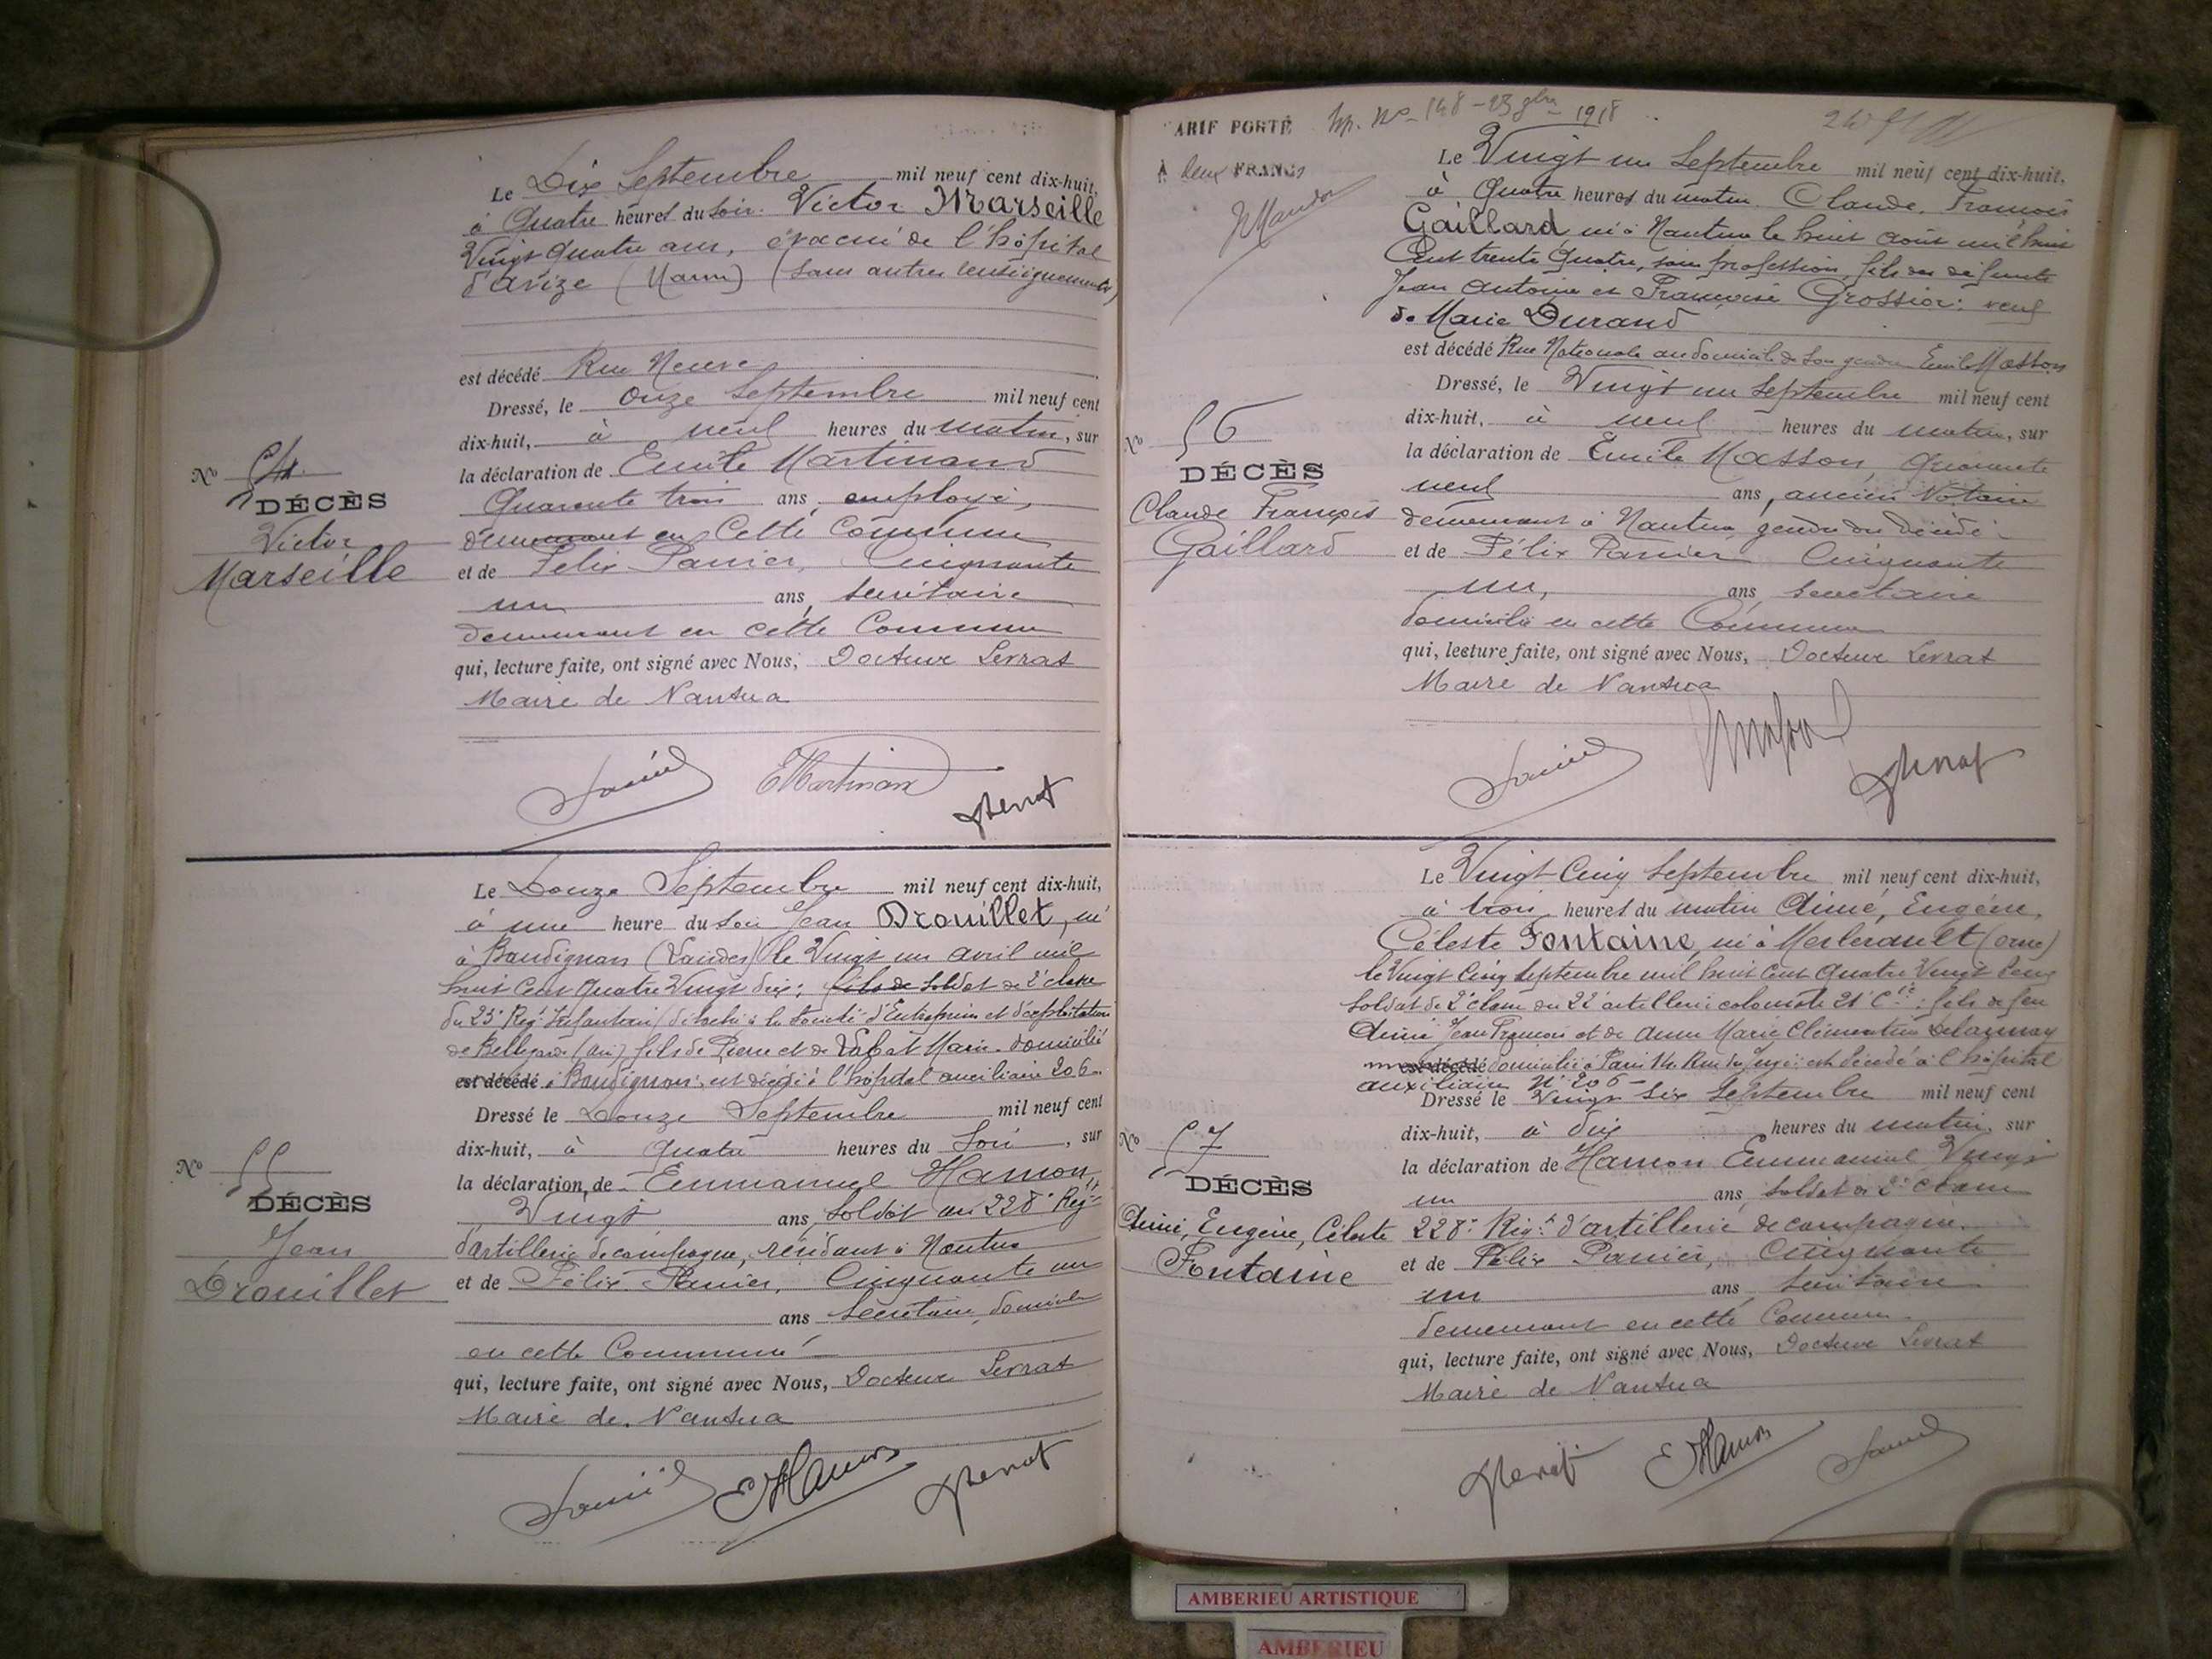 Le Dix Septembre mil neuf cent dix-huit,
à Quatre heures du soir. Victor Marseille
Vingt quatre ans, évacué de l'hôpital
d'Avize (Marne) (sans autres renseignements)
est décédé Rue Neuve
Dressé, le onze Septembre mil neuf cent
dix-huit, à neuf heures du matin, sur
la déclaration de Emile Martinand
Quarante trois ans, employé,
demeurant en Cette Commune
et de Félix Panier, Cinquante
un ans, secrétaire
demeurant en cette Commune
qui, lecture faite, ont signé avec Nous, Docteur Levrat
Maire de Nantua
No 54
DÉCÈS
Victor
Marseille
EMartinand
Le Douze Septembre mil neuf cent dix-huit,
à une heure du soir Jean Drouillet, né
à Baudignan (Landes) le Vingt un avril mil
huit Cent Quatre Vingt dix; fils de soldat de 2e classe
du 23e Régt Infanterie (détaché à la Société d'Entreprise et d'exploitation
de Bellegarde (Ain) fils de Pierre et de Labat Marie. domicilié
est décédé à Baudignan, est décédé à l'hôpital auxiliaire 206.
Dressé le Douze Septembre mil neuf cent
dix-huit, à quatre heures du Soir, sur
la déclaration de Emmanuel Hamon,
Vingt ans, soldat au 228e Régt
d'artillerie de campagne, résidant à Nantua
et de Félix Panier, Cinquante un
ans Secrétaire, domicilié
en cette Commune
qui, lecture faite, ont signé avec Nous, Docteur Levrat
Maire de Nantua
No 55
DÉCÈS
Jean
Drouillet
EHamon
ARIF PORTÉ
À deux FRANCS
148 - 1918
Le Vingt un Septembre mil neuf cent dix-huit,
à Quatre heures du matin. Claude, François
Gaillard né à Nantua le huit août mil huit
Cent trente Quatre, sans profession, fils des défunts
Jean Antoine et Françoise Grossior: veuf
de Marie Durand
est décédé Rue Nationale au domicile de son gendre Emile Masson
Dressé, le Vingt un Septembre mil neuf cent
dix-huit, à neuf heures du matin, sur
la déclaration de Emile Masson, Quarante
neuf ans, ancien Notaire
demeurant à Nantua, gendre du décédé.
et de Félix Panier Cinquante
un, ans, secrétaire
domicilié en cette Commune
qui, lecture faite, ont signé avec Nous, Docteur Levrat
Maire de Nantua
No 56
DÉCÈS
Claude François
Gaillard
Le Vingt Cinq Septembre mil neuf cent dix-huit,
à trois heures du matin Aimé, Eugène,
Céleste Fontaine, né à Merlerault (Orne)
le Vingt Cinq Septembre mil huit Cent Quatre Vingt
soldat de 2e classe du 22e artillerie coloniale 21e Cie: fils de feu
Aimé Jean François et de Anne Marie Clémentine Delaunay
est décédé domicilié à Paris est décédé à l'hôpital
auxiliaire No 206
Dressé le Vingt six Septembre mil neuf cent
dix-huit, à dix heures du matin, sur
la déclaration de Hamon Emmanuel Vingt
un ans, soldat de 2e classe
228e Régt d'artillerie de campagne.
et de Félix Panier, Cinquante
un ans, secrétaire
demeurant en cette Commune.
qui, lecture faite, ont signé avec Nous, Docteur Levrat
Maire de Nantua
No 57
DÉCÈS
Aimé, Eugène, Céleste
Fontaine
EHamon
AMBERIEU ARTISTIQUE
AMBERIEU